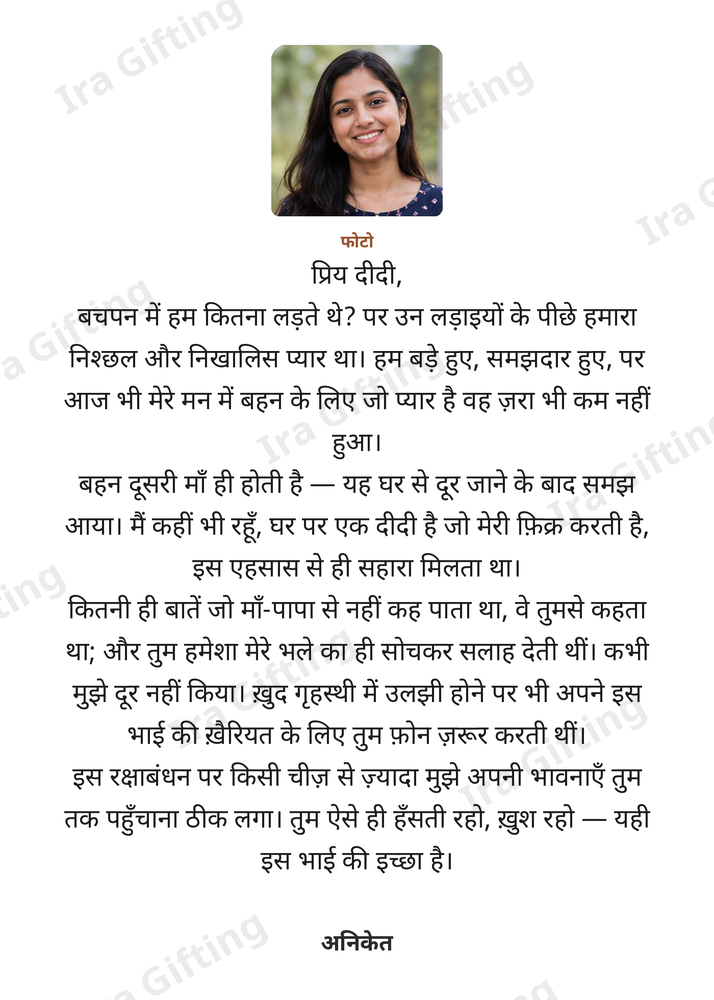 फोटो
प्रिय दीदी,
बचपन में हम कितना लड़ते थे? पर उन लड़ाइयों के पीछे हमारा
निश्छल और निखालिस प्यार था। हम बड़े हुए, समझदार हुए, पर
आज भी मेरे मन में बहन के लिए जो प्यार है वह ज़रा भी कम नहीं
हुआ।
बहन दूसरी माँ ही होती है — यह घर से दूर जाने के बाद समझ
आया। मैं कहीं भी रहूँ, घर पर एक दीदी है जो मेरी फ़िक्र करती है,
इस एहसास से ही सहारा मिलता था।
कितनी ही बातें जो माँ-पापा से नहीं कह पाता था, वे तुमसे कहता
था; और तुम हमेशा मेरे भले का ही सोचकर सलाह देती थीं। कभी
मुझे दूर नहीं किया। ख़ुद गृहस्थी में उलझी होने पर भी अपने इस
भाई की ख़ैरियत के लिए तुम फ़ोन ज़रूर करती थीं।
इस रक्षाबंधन पर किसी चीज़ से ज़्यादा मुझे अपनी भावनाएँ तुम
तक पहुँचाना ठीक लगा। तुम ऐसे ही हँसती रहो, ख़ुश रहो — यही
इस भाई की इच्छा है।
अनिकेत
Ira Gifting
Ira Gifting
Ira G
Ira Gifting
Ira Gifting
Ira Gifting
ting
Ira Gifting
Ira Gifting
Ira Gifting